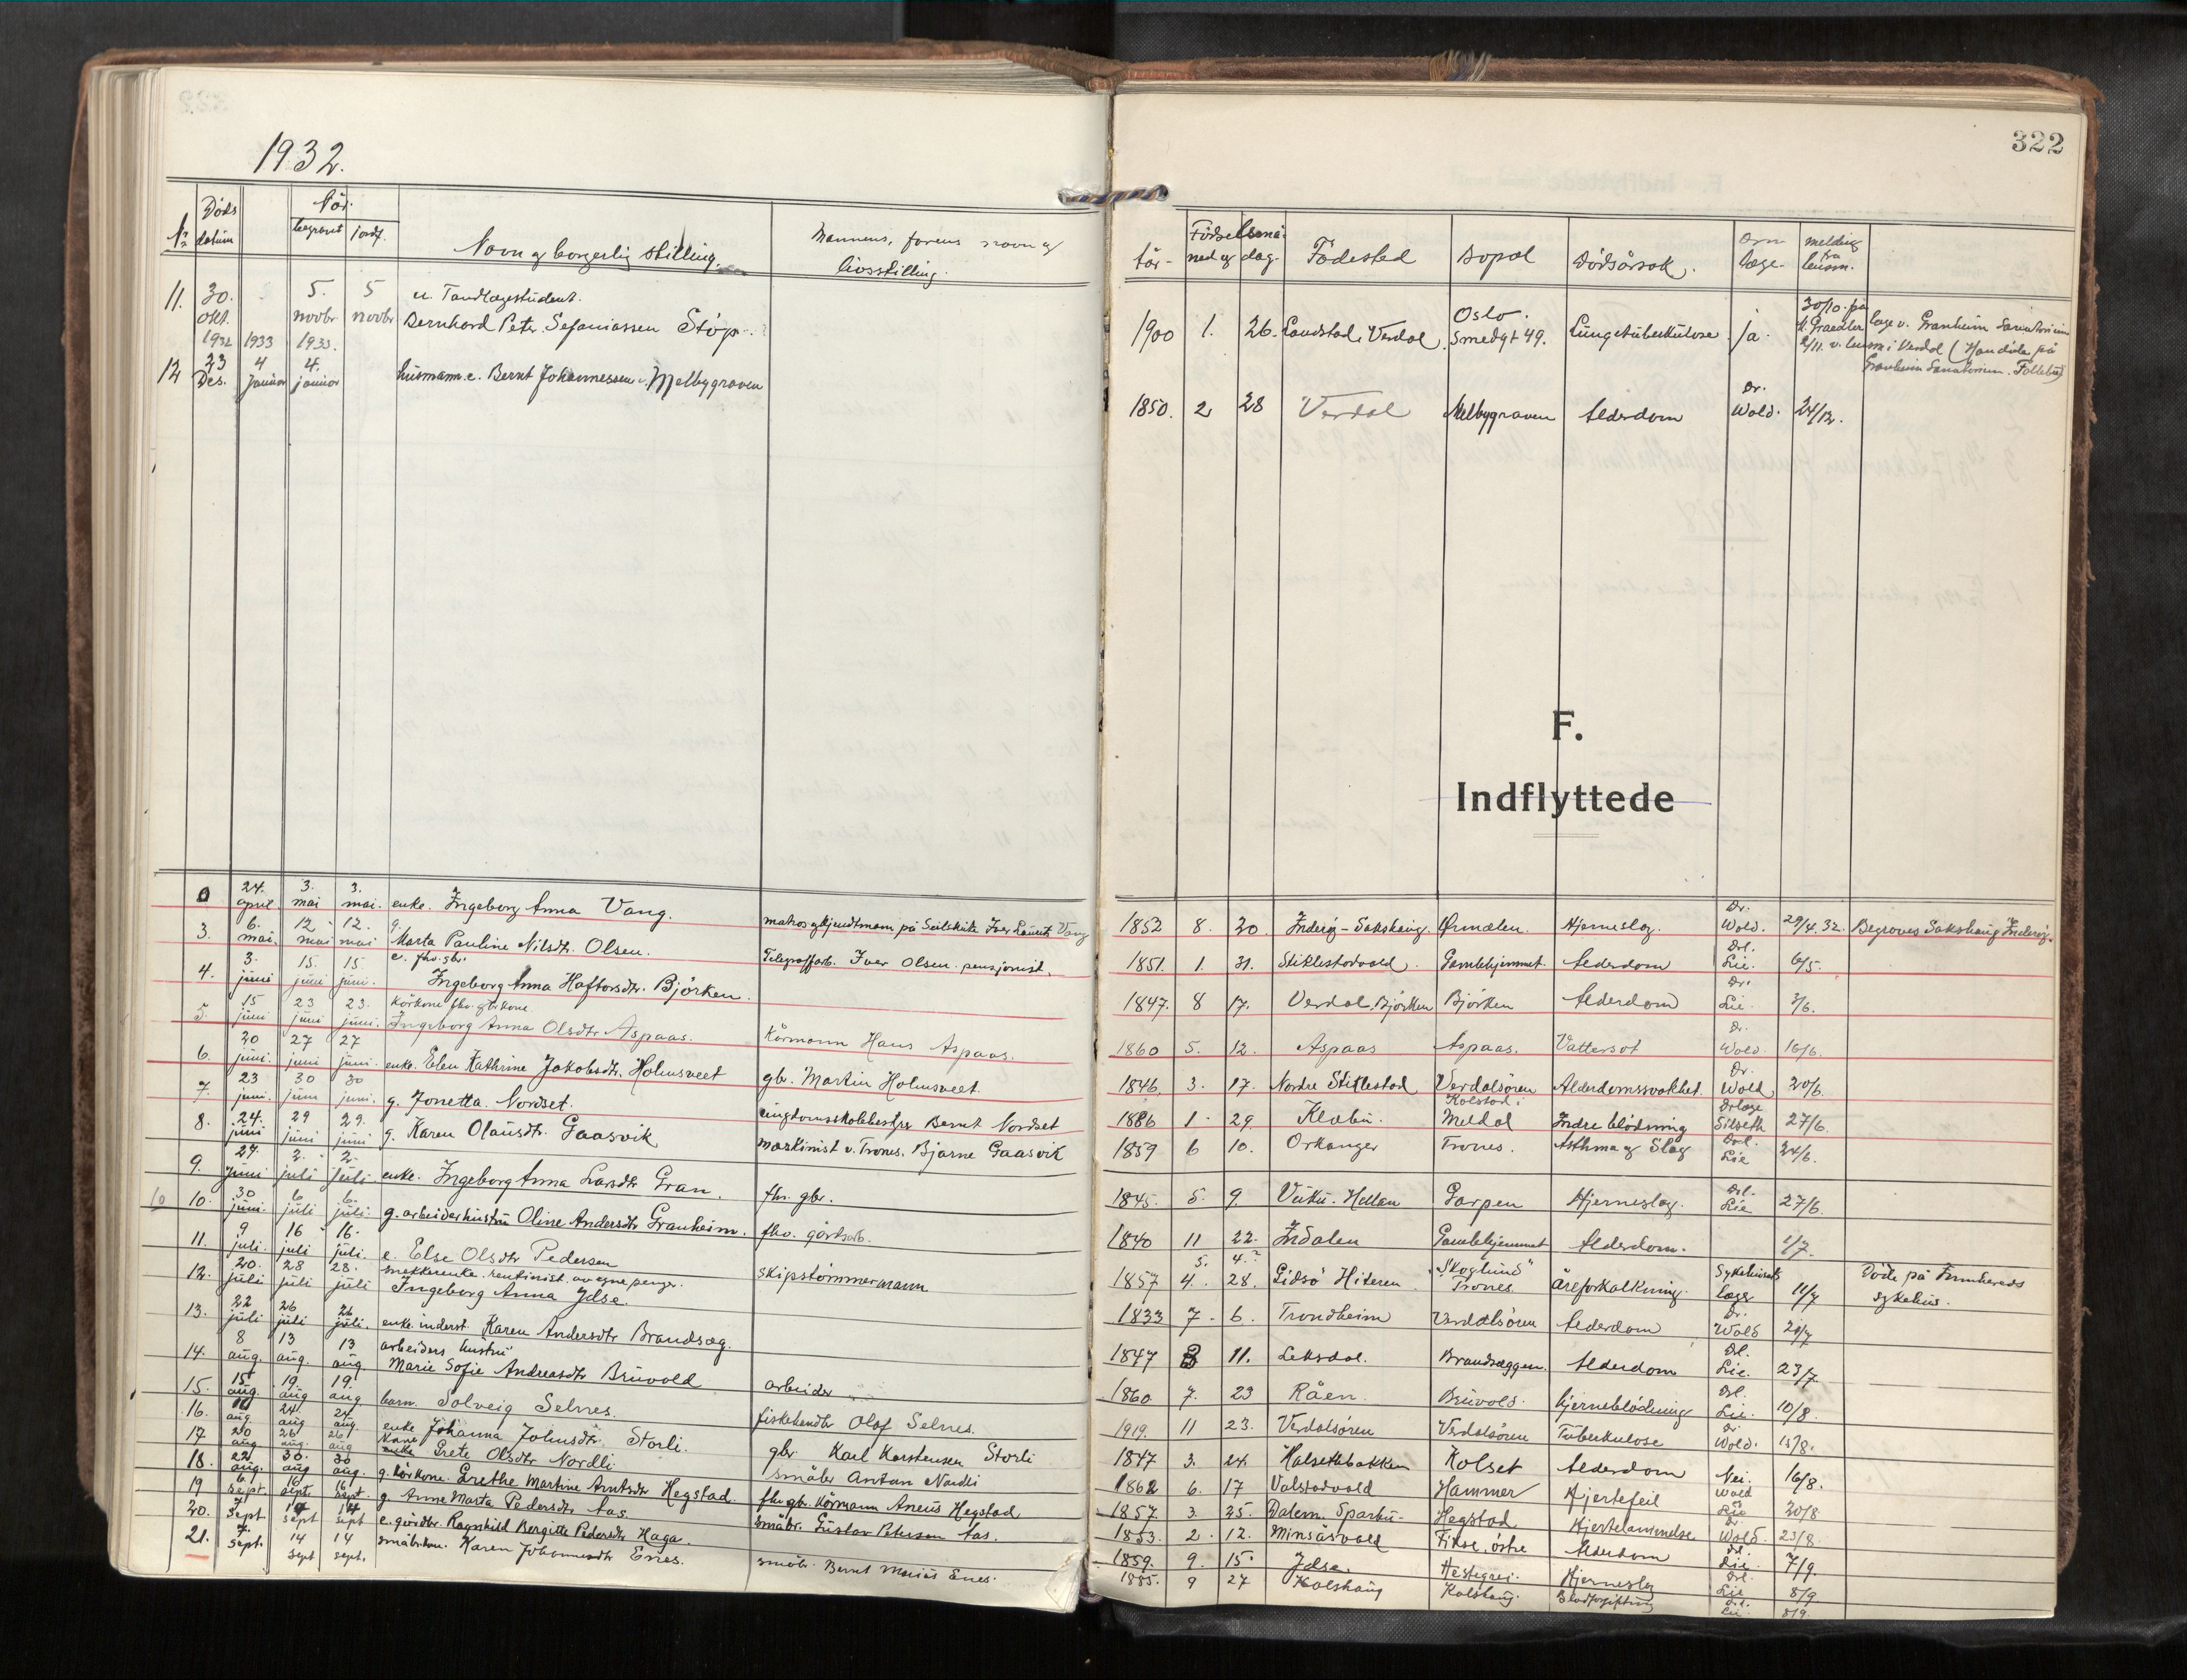 1932.
322
Nr Döds datum Når. begravet jordf. Navn og borgerlig stilling. Mannens, farens navn og livsstilling.
Födselsmåned og dag. år- Födested Bopæl Dödsårsak. Om læge- melding fra lensm.
11. 30. okt. 1932 5. novbr 1933. 5 novbr u. Tandlægestudent. Bernhard Peter Sefaniassen Stöp
1900 1. 26. Landstad i Verdal Oslo. Smedgt 49. Lungetuberkulose ja. 30/10. på læge v. Granheim Sanatorium
2/11. v. lensm. i Verdal (Han döde på Granheim Sanatorium. Follebu)
12 23 Des. 1933 4 januar 4. januar husmann e. Bernt Johannessen Melbygraven
1850. 2 28 Verdal Melbygraven Alderdom Dr. Wold. 24/12.
F.
Indflyttede
24. april 3. mai 3. mai. enke. Ingeborg Anna Vang. matros og kjendtmann på Seilskute Iver Lauritz Vang
1852 8. 20. Inderöy - Sakshaug. Ørmelen. Hjerneslag. Dr. Wold. 29/4.32. Begraves Sakshaug Inderöy.
3. 6. mai. 12 mai 12. mai g. Marta Pauline Nilsdtr. Olsen. Telegrafarb. Iver Olsen. pensjonist.
1851. 1. 31. Stiklestadvald. Gamlehjemmet. Alderdom Drl. Lie. 6/5.
4. 3. juni 15. juni 15. juni. e. fhv. gbr. Ingeborg Anna Haftorsdtr. Björken.
1847. 8 17. Verdal, Björken Björken Alderdom Dr. Lie 3/6.
5 15 juni 23 juni 23. juni. Kårkone fhv. gbrkone Ingeborg Anna Olsdtr Aspaas. Kårmann Hans Aspaas.
1860 5. 12. Aspaas Aspaas. Vattersot Dr. Wold. 16/6.
6. 20 juni. 27 juni 27 juni. enke. Elen Kathrine Jakobsdtr. Holmsveet gbr. Martin Holmsveet.
1846. 3. 17. Nordre Stiklestad Verdalsören Alderdomssvakhet. Dr. Wold 20/6.
7. 23 juni. 30 juni 30 juni. g. Jonetta. Nordset. ungdomsskolebestyrer Bernt Nordset
1886 1. 29. Klæbu. Kolstad i Meldal Indre blödning Drlæge Silseth 27/6.
8. 24. juni 29 juni 29. juni g. Karen Olausdtr. Gaasvik maskinist v. Trones. Bjarne Gaasvik
1859 6 10. Orkanger Trones. Asthma og Slag Drl. Lie 24/6.
9. 27 juni 2. juli 2. juli enke. Ingeborg Anna Larsdtr Gran. fhv. gbr.
1845. 5. 9. Vuku. Hellan Garpen Hjerneslag. Drl. Lie 27/6.
10 10. 30 juni. 6 juli 6. juli. g. arbeiderhustru Oline Andersdtr Granheim. fhv. gårdsarb.
1840 11 22. Indalen Gamlehjemmet Alderdom. 1/7.
11. 9 juli. 16 juli 16. juli. e. Else Olsdtr Pedersen skipstömmermann
1857 5. 4. 4.? 28. Lidsö Hiteren "Skoglund" Trones. Åreforkalkning. Sykehusets læge 11/7 Döde på Innhereds sykehus.
12. 20. juli 28 juli 28. juli snekkerenke. rentenist av egne penger. Ingeborg Anna Ydse.
1833 7. 6. Trondheim Verdalsören Alderdom Dr. Wold 20/7
13. 22 juli 26 juli 26 juli. enke. inderst. Karen Andersdtr Brandsæg.
1847 11. Leksdal. Brandsæggen. Alderdom Dl. Lie. 23/7.
14. 8 aug. 13 aug. 13 aug. arbeiders hustru Marie Sofie Andreasdtr Bruvold arbeider
1860. 7. 23 Råen. Bruvold. hjerneblödning Drl. Lie. 10/8.
15. 15 aug 19. aug 19. aug barn. Solveig Selnes. fiskehandler Olaf Selnes.
1919. 11 23. Verdalsören Verdalsören Tuberkulose Dr Wold. 15/8.
16. aug. 24 aug 24. aug. enke Johanna Johnsdtr. Storli. gbr Karl Karstensen Storli
1847 3. 24. Halsetbakken Kolset Alderdom Nei. 16/8.
17 20 aug 26 aug. 26 aug kone Grete Olsdtr Nordli småbr Anton Nordli
1862 6. 17 Volstadvald Hammer Hjertefeil Wold 20/8
18. 22 aug. 30. aug 30 aug. g. kårkone. Grethe Martine Arntsdtr Hegstad. fhv gbr. kårmann Arneus Hegstad
1857. 3. 25. Dalem. Sparbu- Hegstad Hjertelammelse Dr. Wold. 23/8.
19 6. sept. 16. sept. 16 sept. g Anne Marta Pedersdtr Aas. småbr. Gustav Petersen Aas.
1853. 2. 12. Minsåsvald Fikse, östre Alderdom Drl. Lie 7/9.
20. 7. sept 14 sept 14 sept e. gårdbr. Ragnhild Bergitte Pedersdtr Haga.
1859. 9. 15. Ydse. Hestegrei. Hjerneslag Drl. Lie 8/9
21. 7. sept. 14 sept 14 sept. småbr.kone. Karen Johannesdtr Enes. småbr. Bernt Marius Enes.
1885. 9 27 Kolshaug Kolshaug. Blodforgiftning Drl. Lie. 8/9.